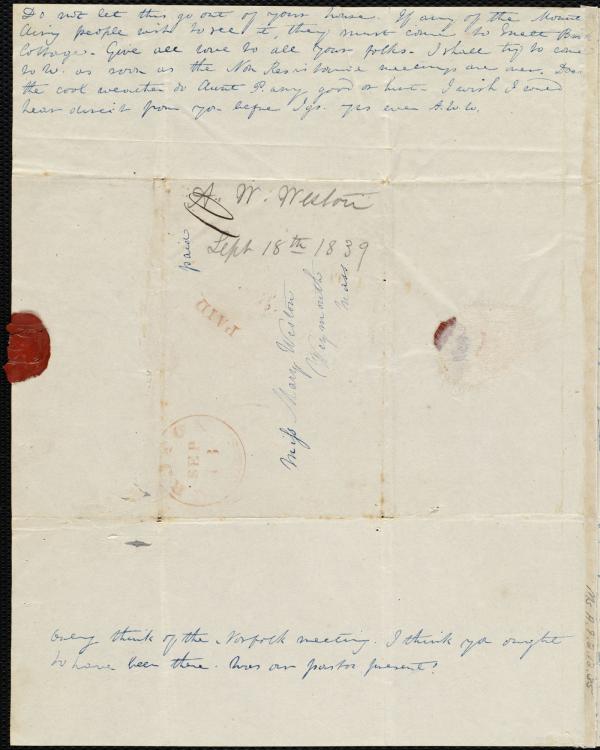 Do not let this go out of your house. If any of the Mount
Airy people wish to see it, they must come to
Cottage. Give all love to all your folks. I shall try to come
to W. as soon as the Non Resistance meetings are over. Does
the cool weather do Aunt P. any good or hurt. I wish I could
hear direct from you before I go. yrs ever A.W.W.
A. W. Weston
Sept 18th 1839
paid
PAID
Miss Mary Weston
Weymouth
Mass
SEP
every think of the Norfolk meeting. I think you ought
to have been there. Was our pastor present?
Ms. A. 9. 2. 12.